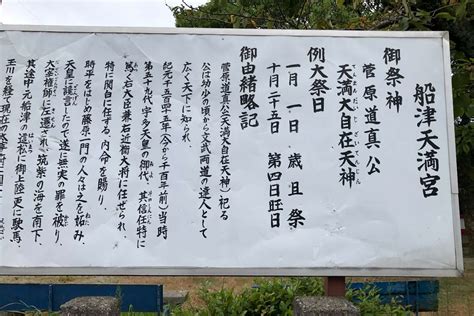 船津天満宮
御祭神
菅原道真公
天満大自在天神
てんまんだいじざいてんじん
例大祭日
一月一日 歳旦祭
十月二十五日 第四日旺日
御由緒略記
菅原道真公(天満大自在天神)に祀る
公は幼少の頃から文武両道の達人として
広く天下に知られ
紀元千五百四十五年(今から千百年前)当時
第五十九代宇多天皇の御代、其信任特に
篤く右大臣兼右近衛大将に任ぜられ
特に関白に任ずる、内命を賜り、
時平をはじめ藤原一門の人々は之を妬み、
天皇に讒言したので遂に無実の罪を被り、
大宰権帥に左遷され、筑紫の海を南下、
其途中元船津の並松に御上陸更に駛馬、